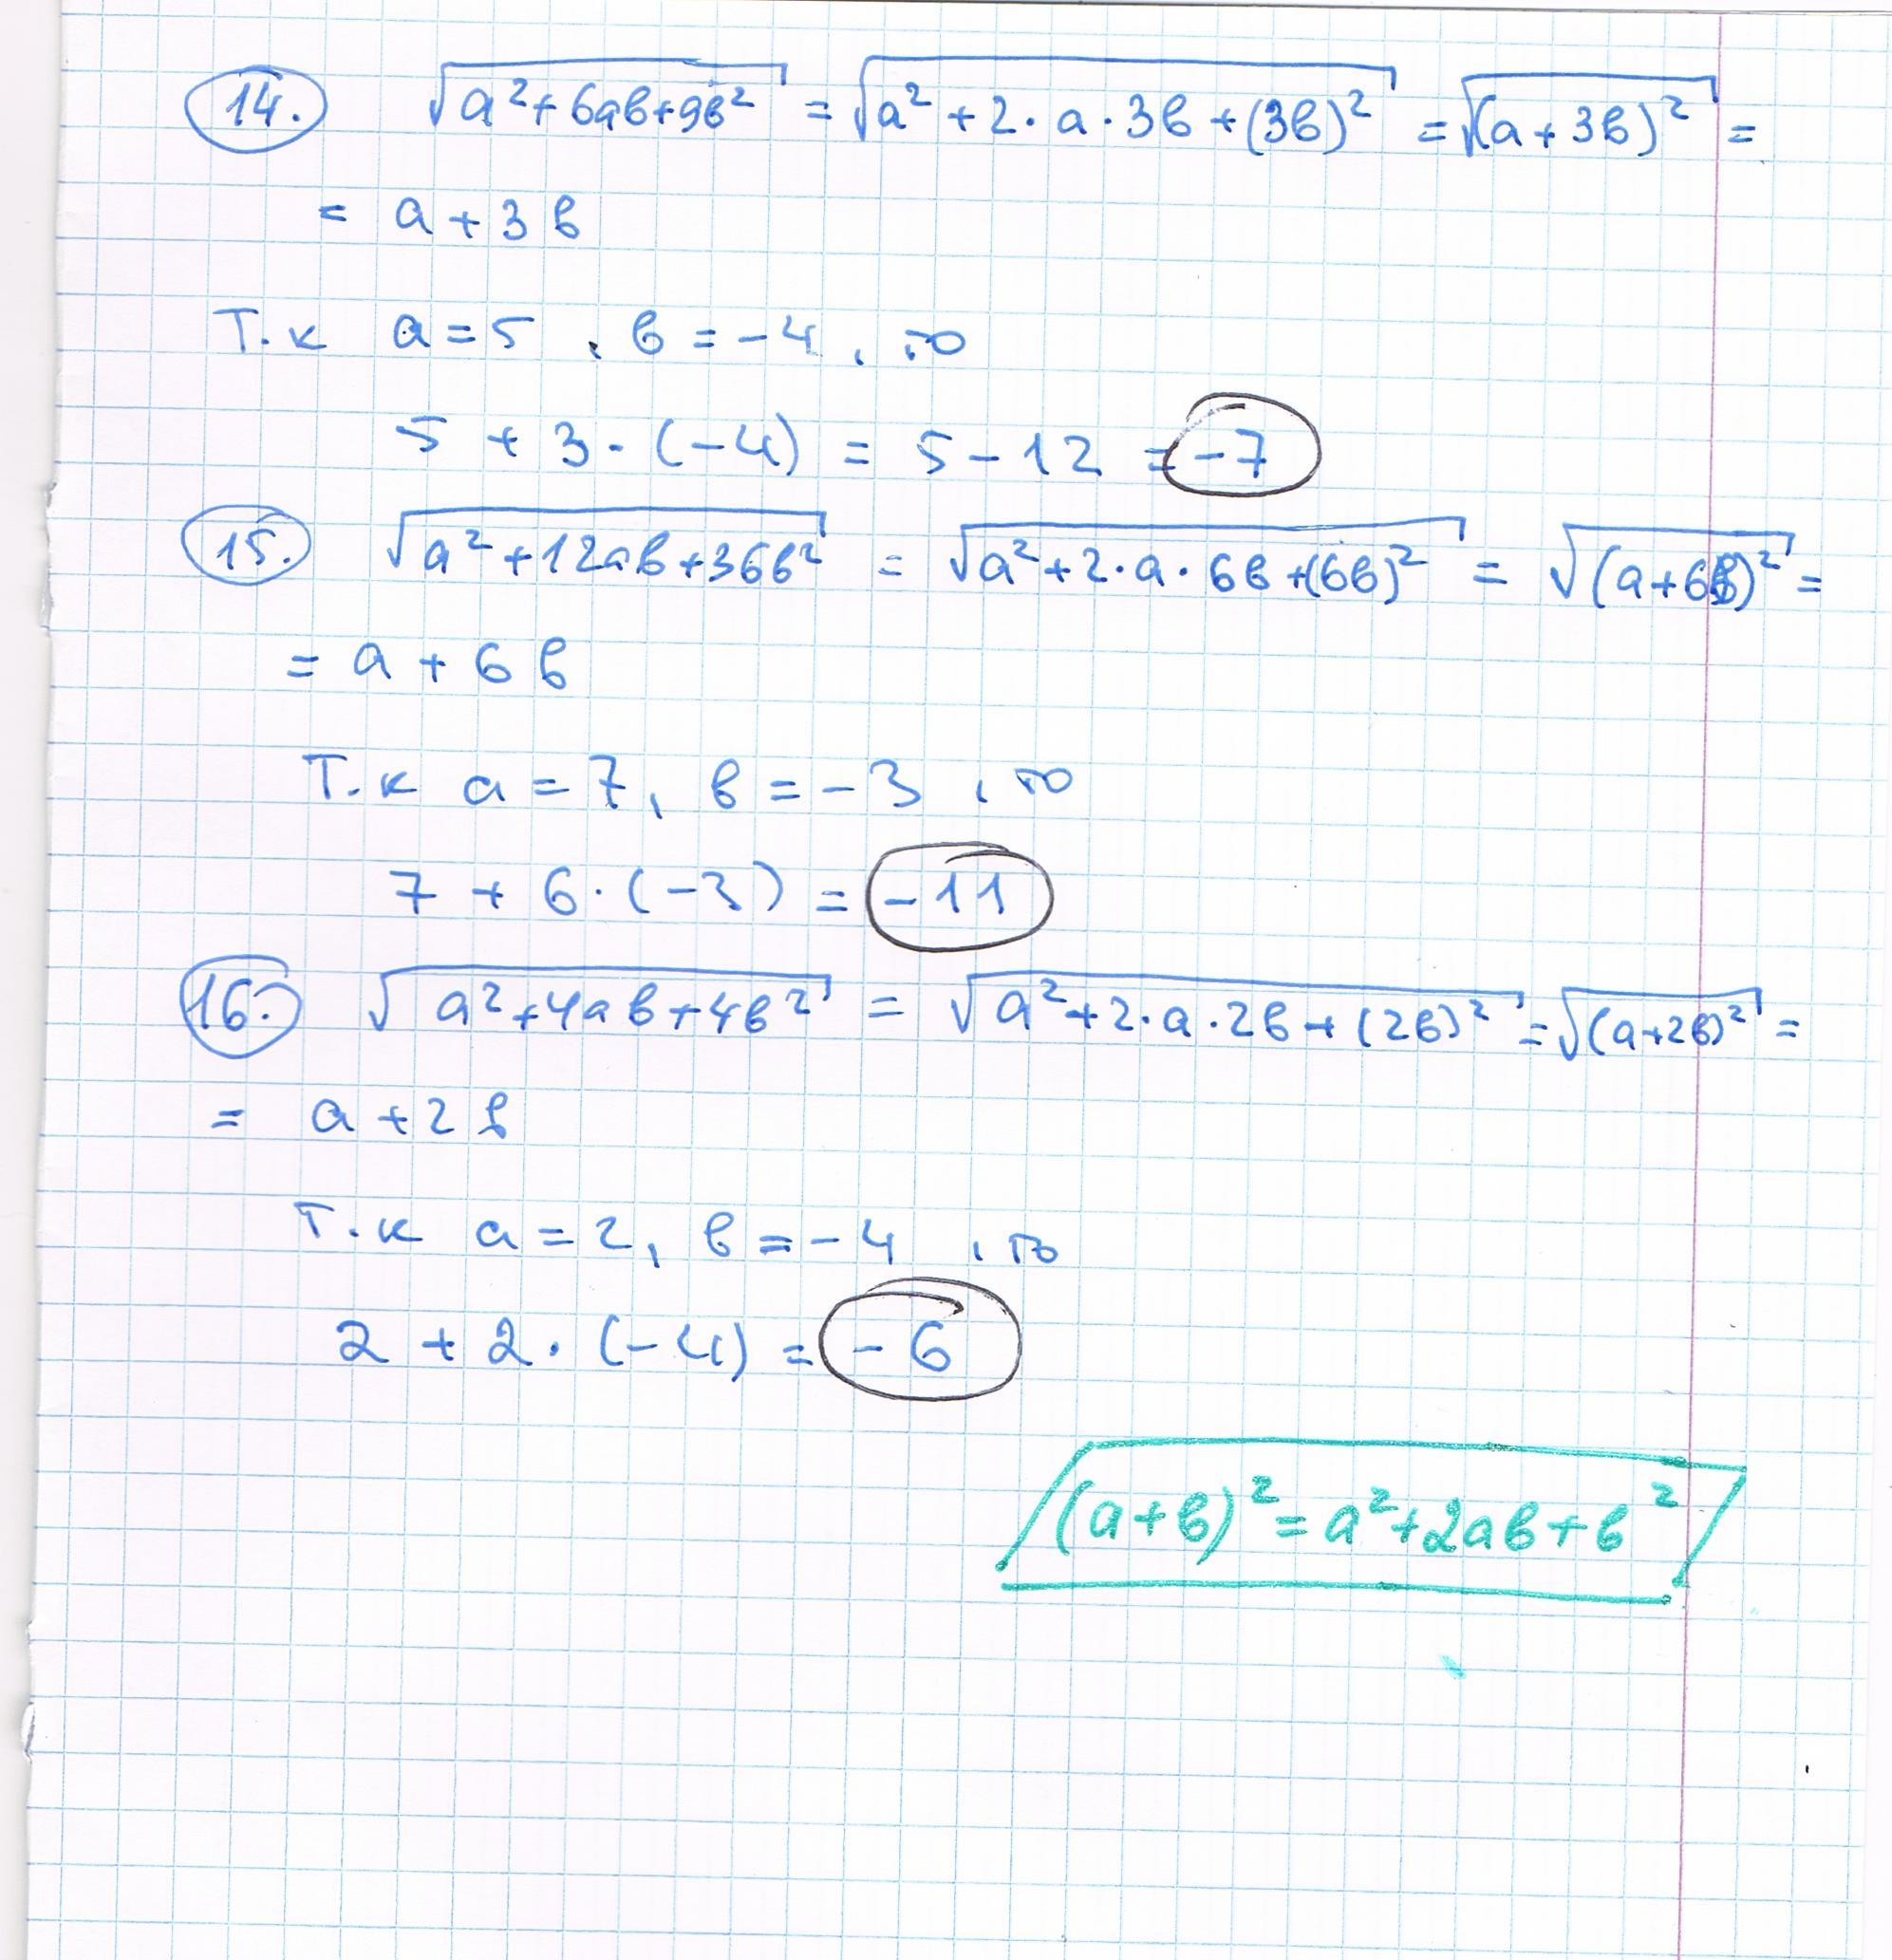 14. √(a²+6ab+9b²) = √(a²+2·a·3b+(3b)²) = √((a+3b)²) =
= a+3b
Т.к a=5, b=-4, то
5+3·(-4) = 5-12 = -7
15. √(a²+12ab+36b²) = √(a²+2·a·6b+(6b)²) = √((a+6b)²) =
= a+6b
Т.к a=7, b=-3, то
7+6·(-3) = -11
16. √(a²+4ab+4b²) = √(a²+2·a·2b+(2b)²) = √((a+2b)²) =
= a+2b
Т.к a=2, b=-4, то
2+2·(-4) = -6
(a+b)² = a²+2ab+b²